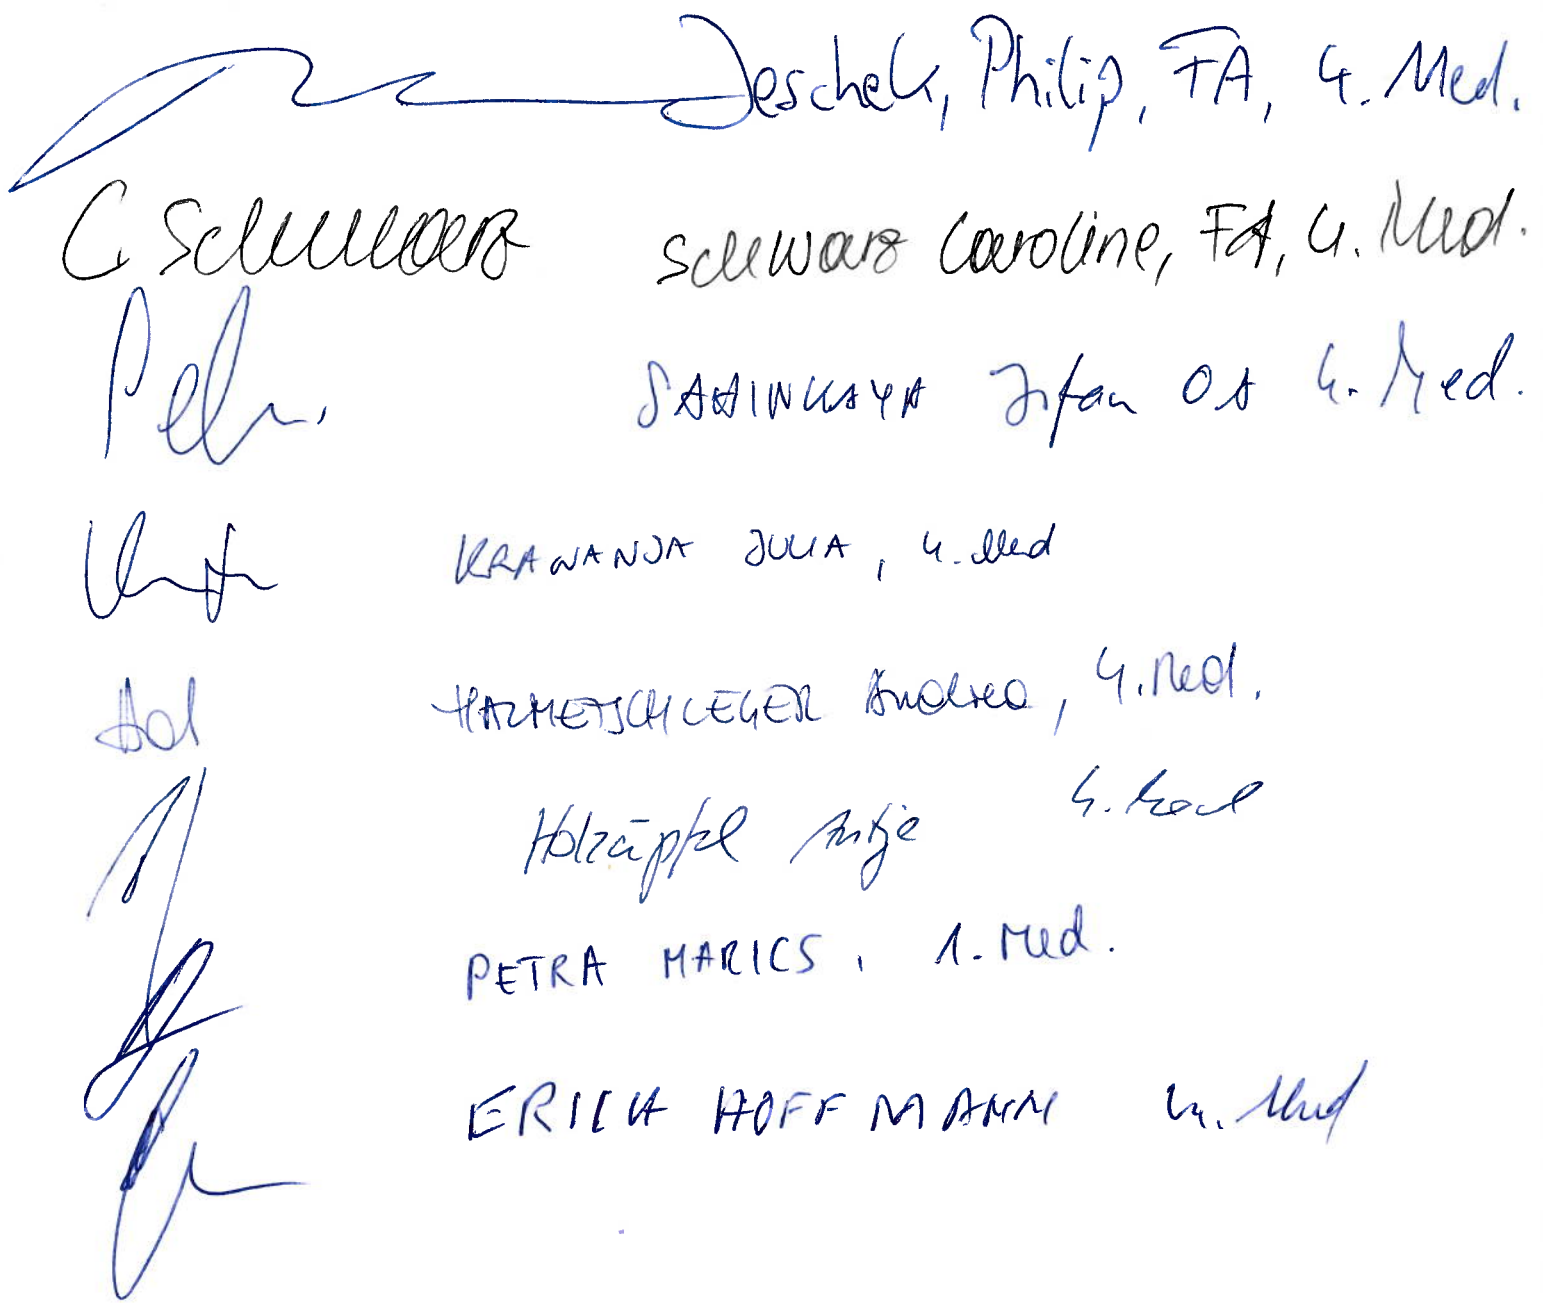 Jeschek, Philip, FA, 4. Med.
C Schwarz Schwarz Caroline, FA, 4. Med.
SAHINKAYA Irfan OA 4. Med.
KRAWANJA JULIA, 4. Med
HALMETSCHLEGER Andrea, 4. Med.
Holzäpfel Antje 4. Med
PETRA MARICS, 1. Med.
ERICH HOFFMANN 4. Med